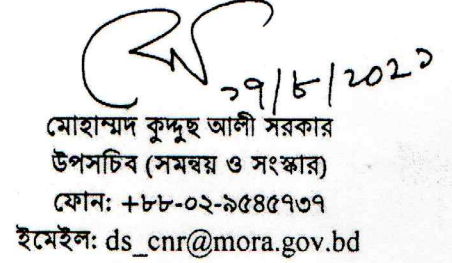 ১৭/৮/২০২১
মোহাম্মদ কুদ্দুছ আলী সরকার
উপসচিব (সমন্বয় ও সংস্কার)
ফোন: +৮৮-০২-৯৫৪৫৭৩৭
ইমেইল: ds_cnr@mora.gov.bd